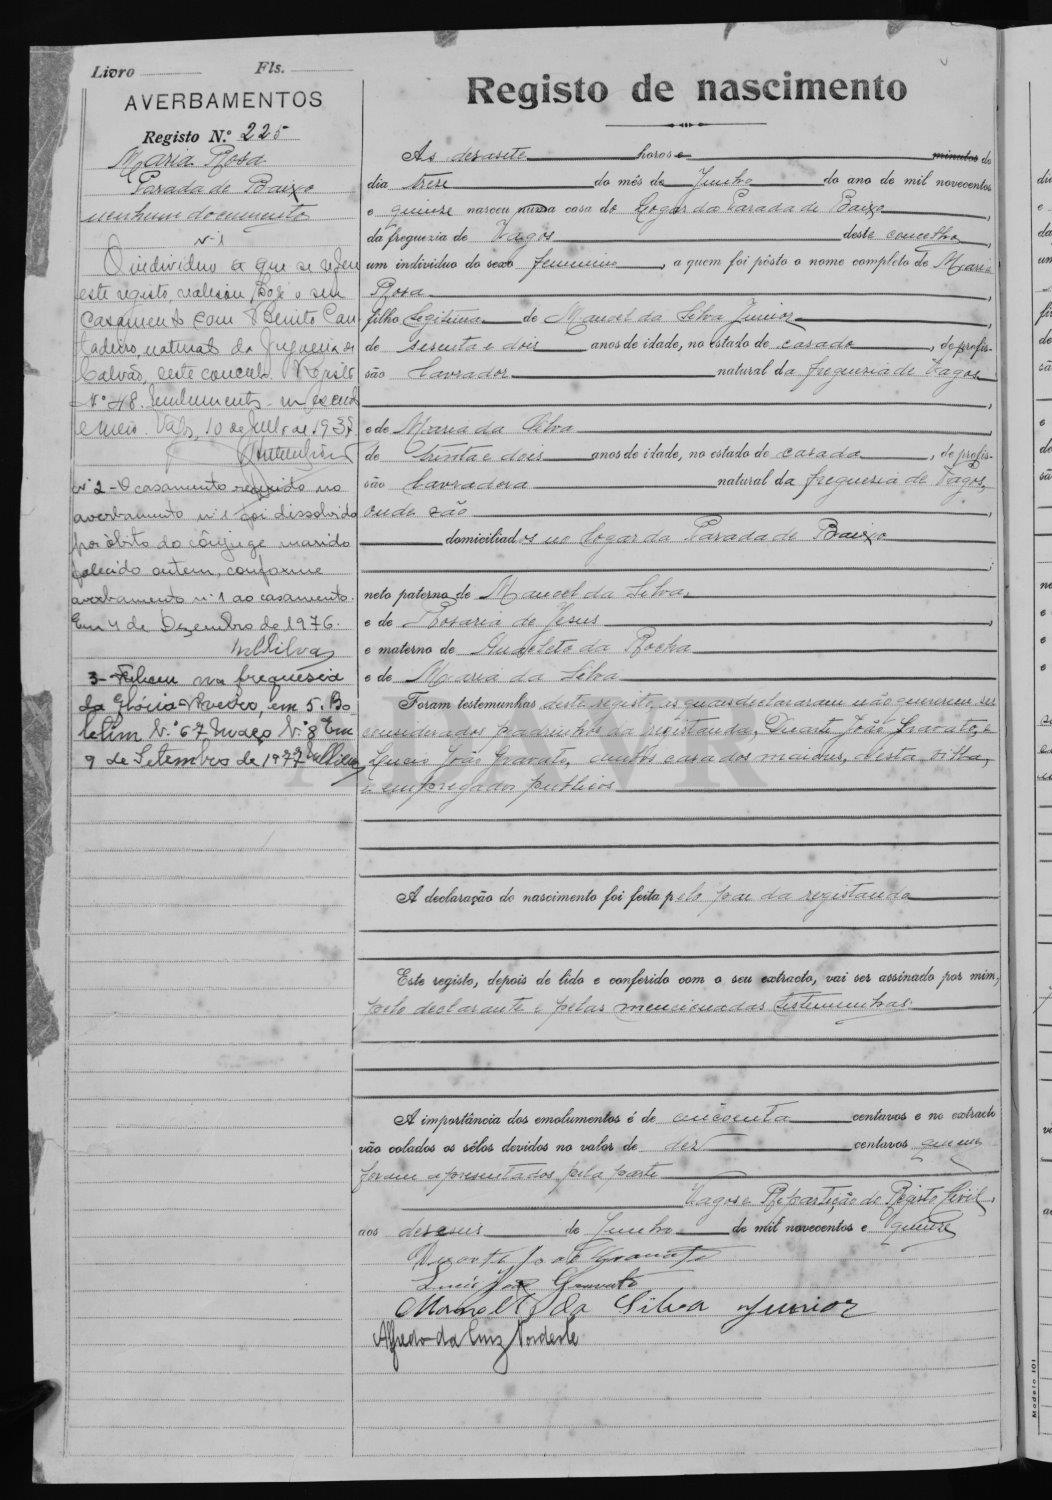 Livro Fls.
AVERBAMENTOS
Registo N.º 225
Maria Rosa
Parada de Baixo
nenhum documento
Nº 1
O individuo a que se refere
este registo, realisou hoje o seu
casamento com Benito Cau
ladeiro, natural da freguesia de
Calvão, deste concelho. Registo
Nº 48. Emolumentos
e meio. Vagos, 10 de Julho de 193
nº 2 - O casamento referido no
averbamento nº 1 foi dissolvido
por óbito do cônjuge marido
falecido ontem, conforme
averbamento nº 1 ao casamento.
Em 4 de Dezembro de 1976.
MSilva
3- Faleceu na freguesia
da Glória-Aveiro, em 5. Bo
letim N.º 67 Maço N.º 8 Em
9 de Setembro de 1977
Registo de nascimento
Às desasete horas e minutos do
dia trese do mês de Junho do ano de mil novecentos
e quinse nasceu numa casa do Logar da Parada de Baixo,
da freguezia de Vagos deste concelho,
um individuo do sexo femenino, a quem foi pôsto o nome completo de Maria
Rosa,
filho legitima de Manoel da Silva Junior,
de sesenta e dois anos de idade, no estado de casado, de profis-
são lavrador natural da freguesia de Vagos
e de Maria da Silva
de trinta e dois anos de idade, no estado de casada, de profis-
são lavradora natural da freguesia de Vagos,
onde são
domiciliados no Logar da Parada de Baixo
;
neto paterno de Manoel da Silva,
e de Rosaria de Jesus,
e materno de Anacleto da Rocha
e de Maria da Silva
Foram testemunhas deste registo, as quaes declararam não quererem ser
considerados padrinhos da registanda, Duarte João Gravato, e
Lucio João Gravato, ambos casados maiores, desta villa,
e empregados publicos
A declaração do nascimento foi feita pelo pae da registanda
Este registo, depois de lido e conferido com o seu extracto, vai ser assinado por mim,
pelo declarante e pelas mencionadas testemunhas.
A importância dos emolumentos é de cincoenta centavos e no extracto
vão colados os sêlos devidos no valor de dez centavos que me
foram apresentados pela parte
Vagos e Repartição do Registo Civil,
aos deseseis de Junho de mil novecentos e quinse
Duarte João Gravato
Lucio João Gravato
Manoel da Silva Junior
Alfredo da Cruz Nordeste
ADAVR
Modelo 101